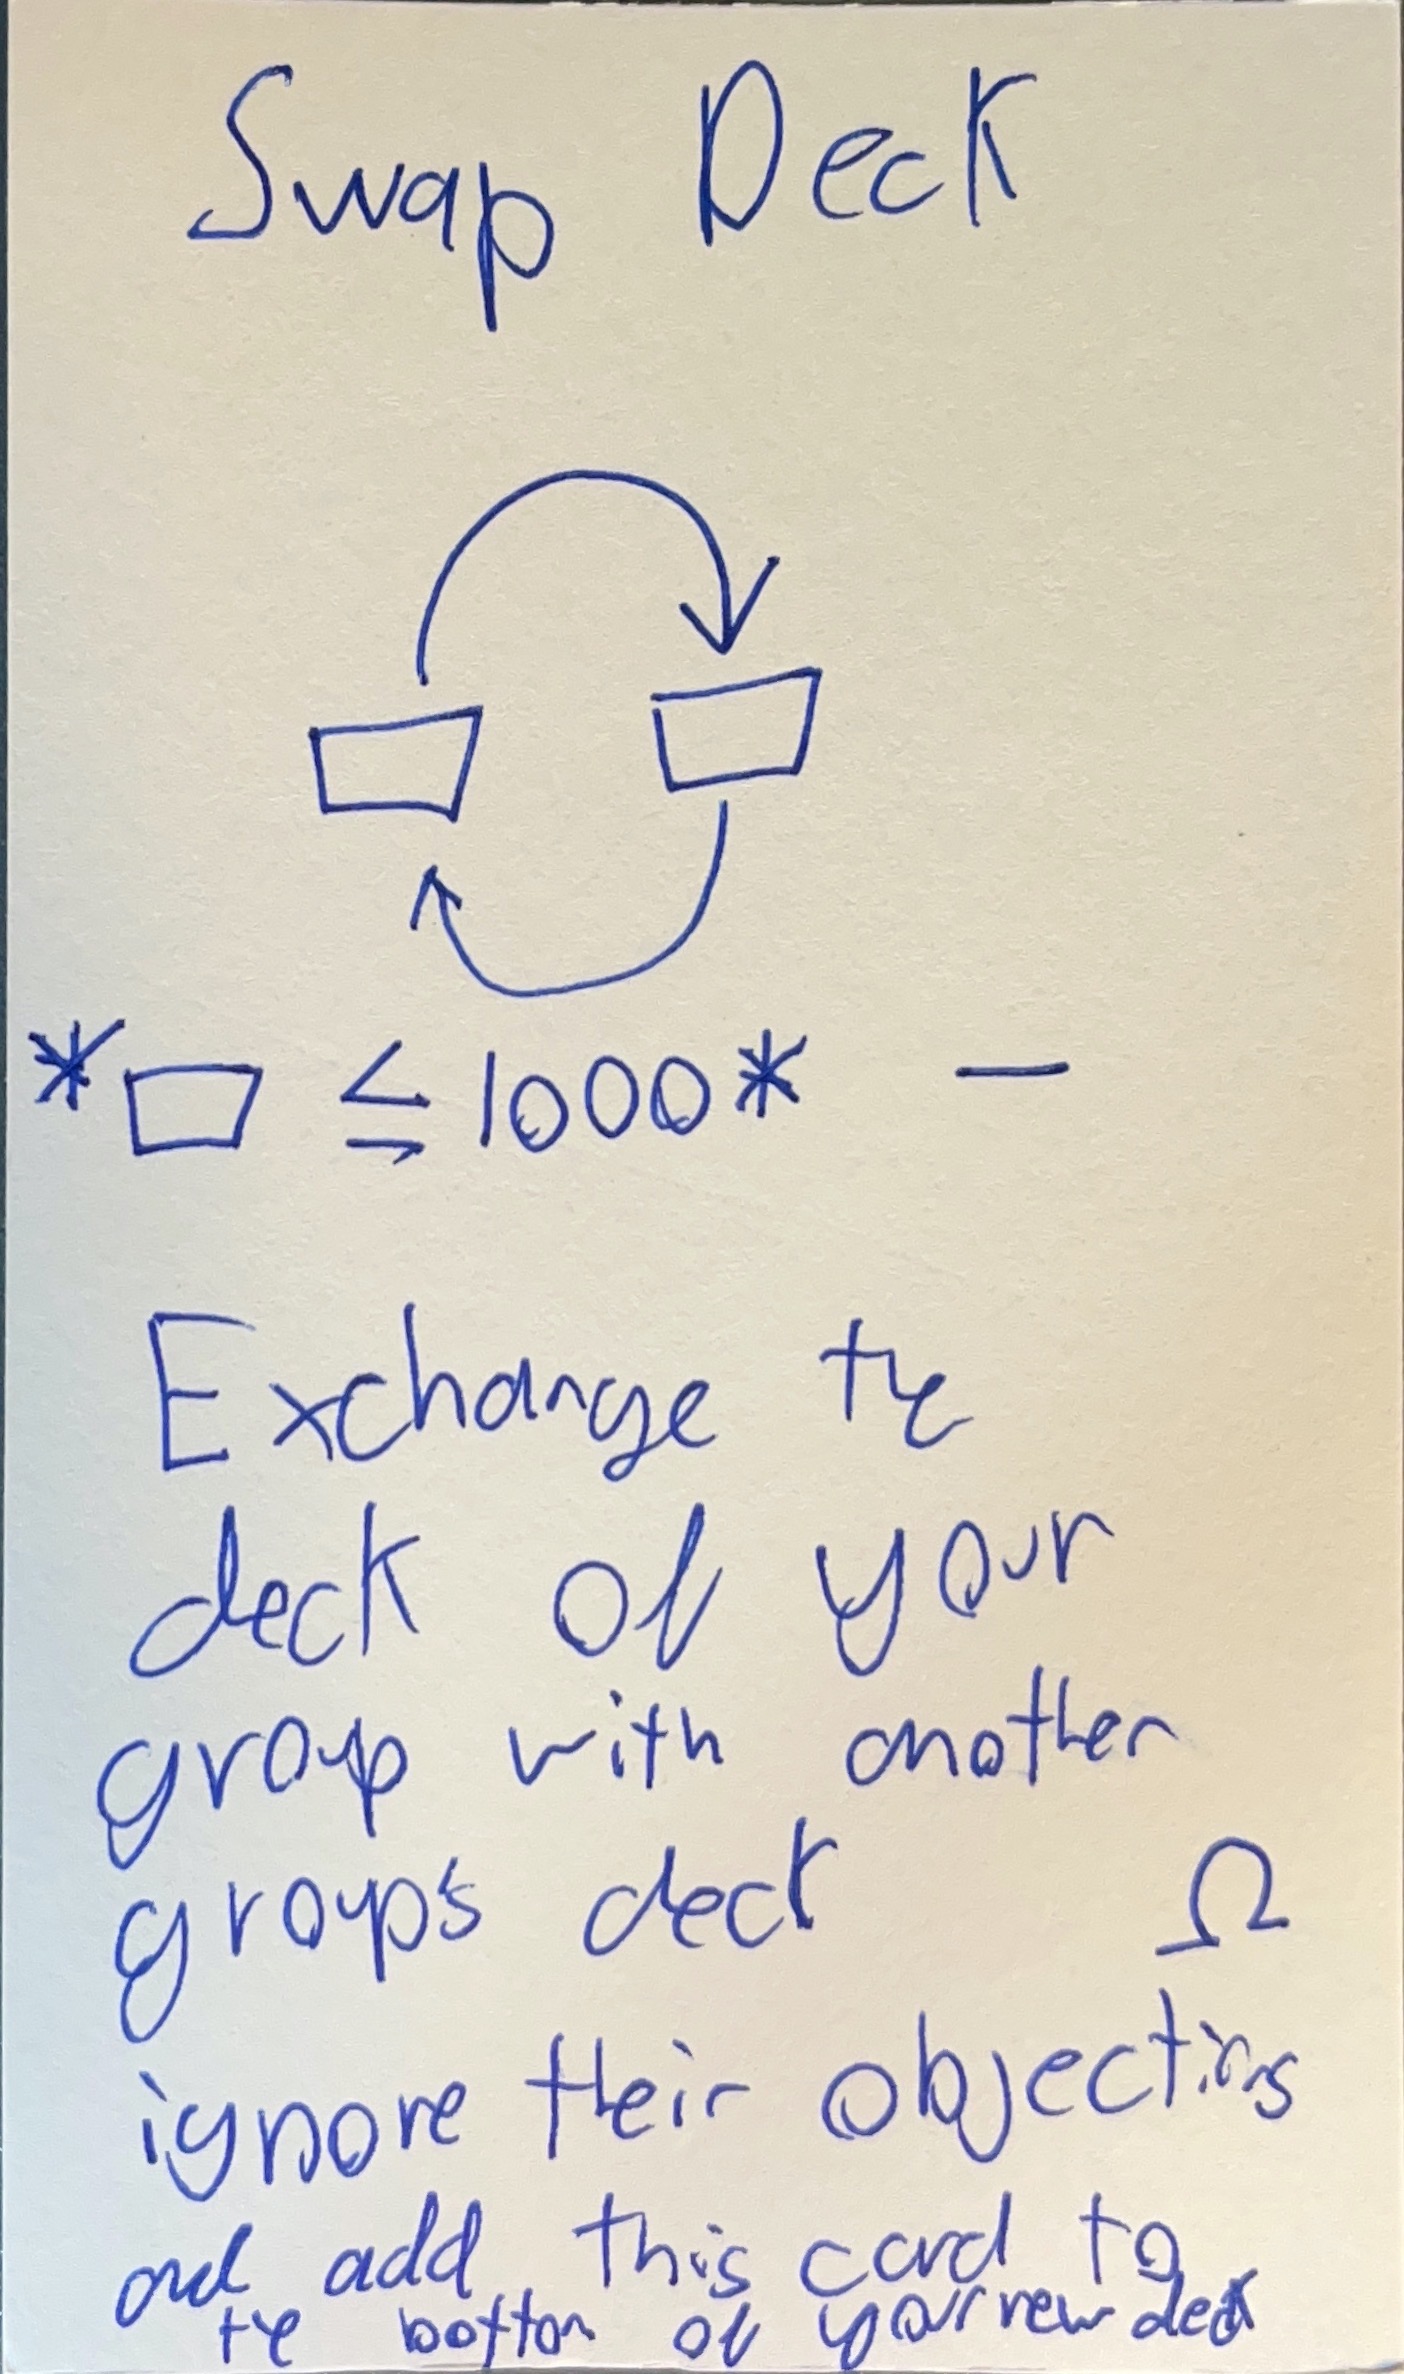 Swap Deck
* ≤ 1000* —
Exchange the
deck of your
group with another
groups deck
Ω
ignore their objections
and add this card to
the bottom of your new deck